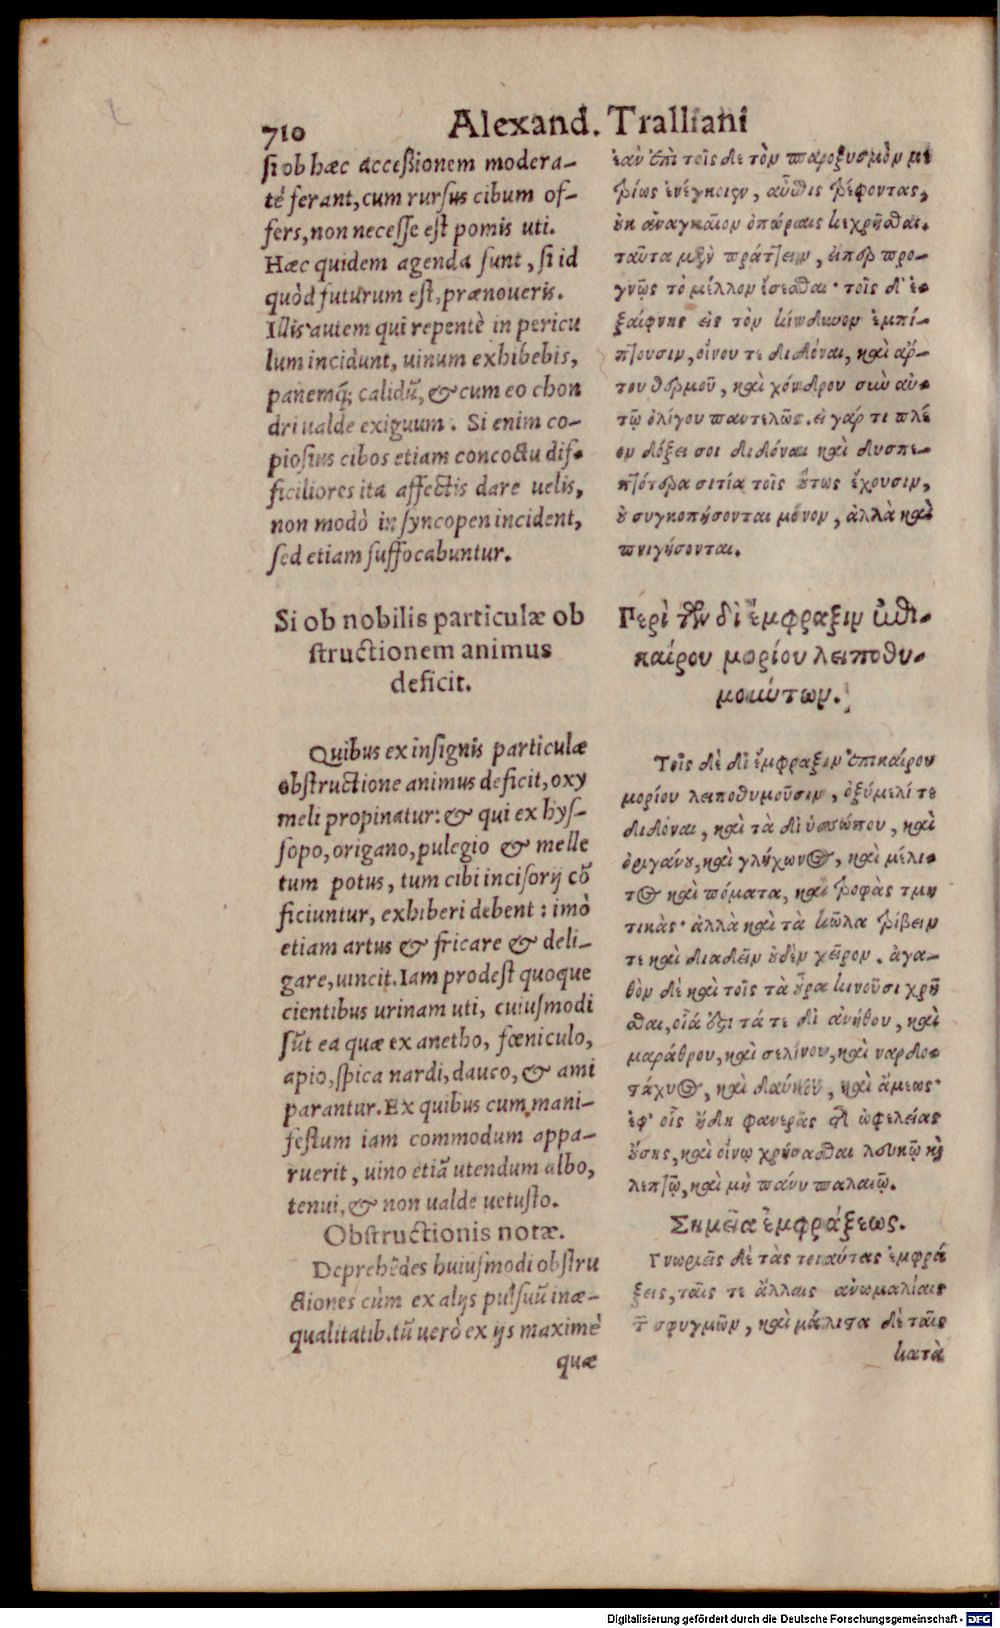 710
Alexand. Tralliani
si ob hæc accessionem modera-
tè ferant, cum rursus cibum of-
fers, non necesse est pomis uti.
Hæc quidem agenda sunt, si id
quòd futurum est, prænoueris.
Illis autem qui repentè in pericu
lum incidunt, uinum exhibebis,
panemq́; calidũ, & cum eo chon
dri ualde exiguum. Si enim co-
piosius cibos etiam concoctu dif-
ficiliores ita affectis dare uelis,
non modò in syncopen incident,
sed etiam suffocabuntur.
Si ob nobilis particulæ ob
structionem animus
deficit.
Quibus ex insignis particulæ
obstructione animus deficit, oxy
meli propinatur: & qui ex hys-
sopo, origano, pulegio & melle
tum potus, tum cibi incisorij cõ
ficiuntur, exhiberi debent: imò
etiam artus & fricare & deli-
gare, uincit. Iam prodest quoque
cientibus urinam uti, cuiusmodi
sũt ea quæ ex anetho, fœniculo,
apio, spica nardi, dauco, & ami
parantur. Ex quibus cum mani-
festum iam commodum appa-
ruerit, uino etiã utendum albo,
tenui, & non ualde uetusto.
Obstructionis notæ.
Deprehẽdes huiusmodi obstru
ctiones cùm ex alijs pulsuũ inæ-
qualitatib. tũ uerò ex ijs maximè
quæ
ἐὰν ἐπὶ τοῖς δε τὸν παροξυσμὸν με
τρίως ἐνέγκοιεν, αὖθις τρέφοντας,
οὐκ ἀναγκαῖον ὀπώραις κεχρῆσθαι.
ταῦτα μὲν πράττειν, εἴπερ προ-
γνῷς τὸ μέλλον ἔσεσθαι· τοῖς δ' ἐ-
ξαίφνης εἰς τὸν κίνδυνον ἐμπί-
πτουσιν, οἴνου τε διδόναι, καὶ ἄρ-
του θερμοῦ, καὶ χόνδρου σὺν αὐ-
τῷ ὀλίγου παντελῶς. εἰ γάρ τι πλέ
ον δόξει σοι διδόναι καὶ δυσπε-
πτότερα σιτία τοῖς οὕτως ἔχουσιν,
οὐ συγκοπήσονται μόνον, ἀλλὰ καὶ
πνιγήσονται.
Περὶ τῶν δι' ἔμφραξιν ἐπι-
καίρου μορίου λειποθυ-
μούντων.
Τοῖς δὲ δι' ἔμφραξιν ἐπικαίρου
μορίου λειποθυμοῦσιν, ὀξύμελί τε
διδόναι, καὶ τὰ δι' ὑσσώπου, καὶ
ὀριγάνου, καὶ γλήχωνος, καὶ μέλι-
τος καὶ πόματα, καὶ ῥοφὰς τμη
τικὰς· ἀλλὰ καὶ τὰ κῶλα τρίβειν
τε καὶ διαδεῖν οὐδὲν χεῖρον. ἀγα-
θὸν δὲ καὶ τοῖς τὰ οὖρα κινοῦσι χρῆ
σθαι, οἷά ἐστι τά τε δι' ἀνήθου, καὶ
μαράθρου, καὶ σελίνου, καὶ ναρδο-
στάχυος, καὶ δαύκου, καὶ ἄμεως·
ἐφ' οἷς ἤδη φανερᾶς τῆς ὠφελείας
οὔσης, καὶ οἴνῳ χρήσασθαι λευκῷ καὶ
λεπτῷ, καὶ μὴ πάνυ παλαιῷ.
Σημεῖα ἐμφράξεως.
Γνωριεῖς δὲ τὰς τοιαύτας ἐμφρά
ξεις, ταῖς τε ἄλλαις ἀνωμαλίαις
τῶν σφυγμῶν, καὶ μάλιστα δὲ ταῖς
κατὰ
Digitalisierung gefördert durch die Deutsche Forschungsgemeinschaft - DFG